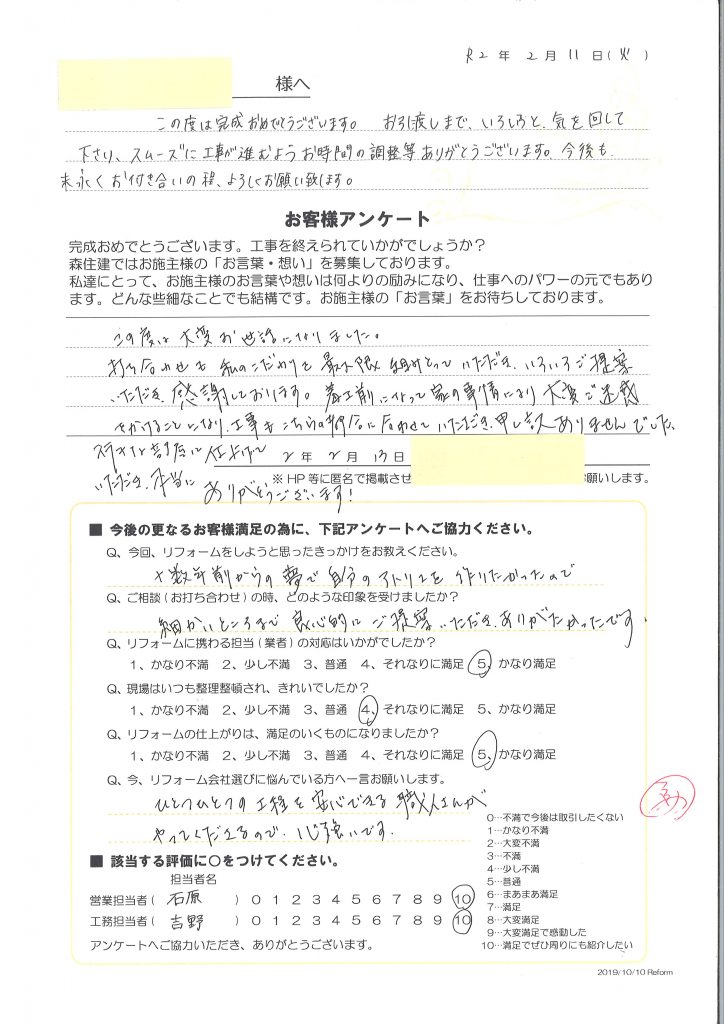 R2年 2月 11日(火)
様へ
この度は完成おめでとうございます。 お引渡しまで、いろいろと、気を回して
下さり、スムーズに工事が進むようお時間の調整等ありがとうございます。今後も
末永くお付き合いの程、よろしくお願い致します。
お客様アンケート
完成おめでとうございます。工事を終えられていかがでしょうか？
森住建ではお施主様の「お言葉・想い」を募集しております。
私達にとって、お施主様のお言葉や想いは何よりの励みになり、仕事へのパワーの元でもあり
ます。どんな些細なことでも結構です。お施主様の「お言葉」をお待ちしております。
この度は大変お世話になりました。
打ち合わせも私のこだわりを最大限組みとっていただき、いろいろご提案
いただき、感謝しております。着工前になって家の事情により大変ご迷惑
をかけることになり、工事もこちらの都合に合わせていただき、申し訳ありませんでした。
ステキな部屋に仕上げて
いただき、本当に ありがとうございます！
2年 2月 13日
※HP等に匿名で掲載させ お願いします。
■ 今後の更なるお客様満足の為に、下記アンケートへご協力ください。
Q、今回、リフォームをしようと思ったきっかけをお教えください。
十数年前からの夢で自分のアトリエを作りたかったので
Q、ご相談（お打ち合わせ）の時、どのような印象を受けましたか？
細かいところまで良心的にご提案いただき、ありがたかったです。
Q、リフォームに携わる担当（業者）の対応はいかがでしたか？
1、かなり不満 2、少し不満 3、普通 4、それなりに満足 5、かなり満足
Q、現場はいつも整理整頓され、きれいでしたか？
1、かなり不満 2、少し不満 3、普通 4、それなりに満足 5、かなり満足
Q、リフォームの仕上がりは、満足のいくものになりましたか？
1、かなり不満 2、少し不満 3、普通 4、それなりに満足 5、かなり満足
Q、今、リフォーム会社選びに悩んでいる方へ一言お願いします。
ひとつひとつの工程を安心できる職人さんが
やってくださるので、心強いです。
■ 該当する評価に○をつけてください。
担当者名
営業担当者（ 石原 ）0 1 2 3 4 5 6 7 8 9 10
工務担当者（ 吉野 ）0 1 2 3 4 5 6 7 8 9 10
アンケートへご協力いただき、ありがとうございます。
0…不満で今後は取引したくない
1…かなり不満
2…大変不満
3…不満
4…少し不満
5…普通
6…まあまあ満足
7…満足
8…大変満足
9…大変満足で感動した
10…満足でぜひ周りにも紹介したい
2019/10/10 Reform